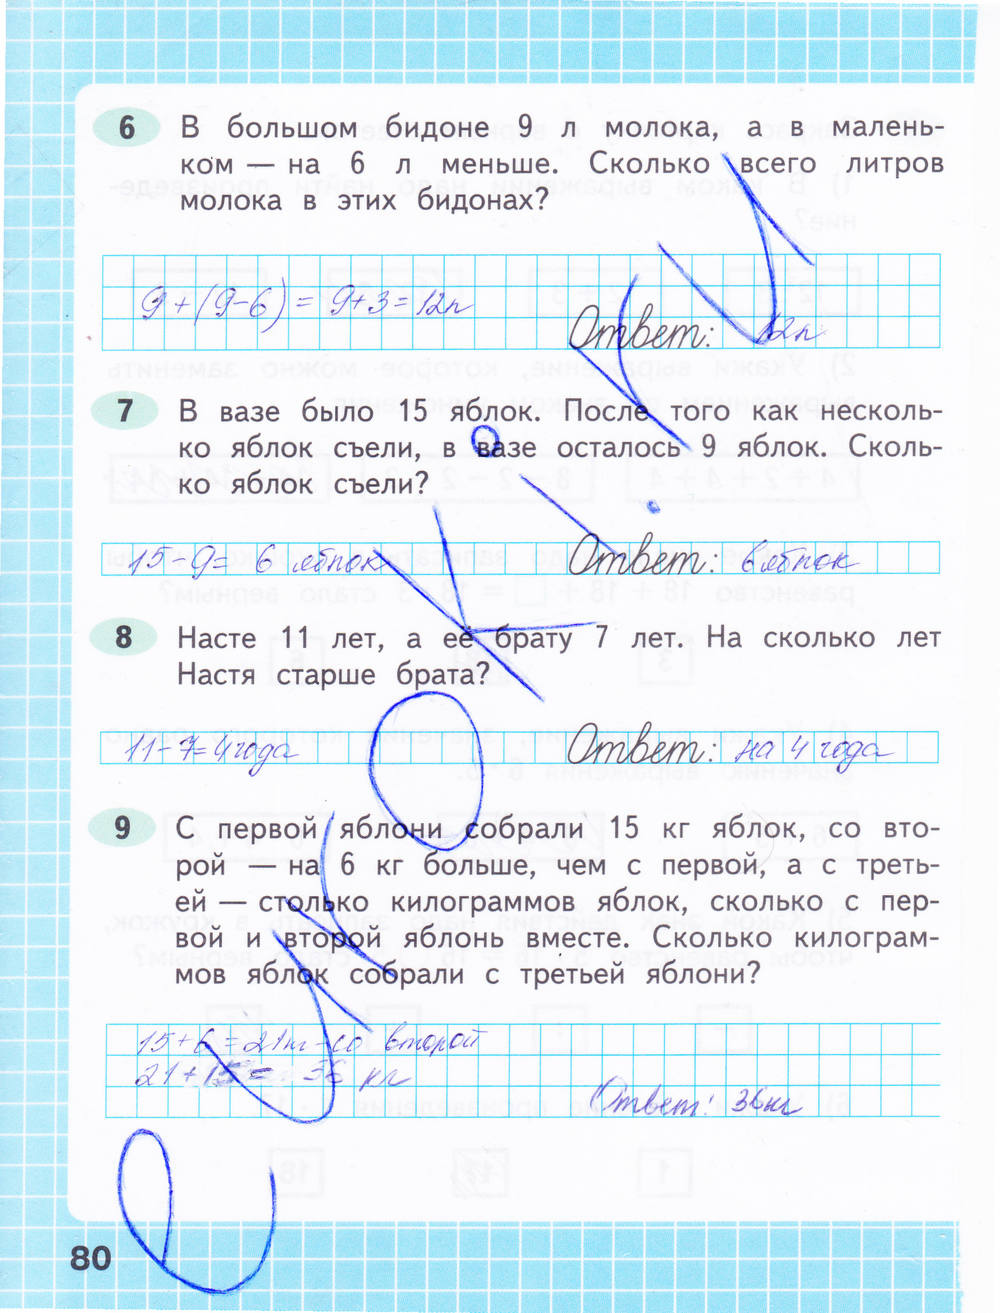 6 В большом бидоне 9 л молока, а в малень-
ком — на 6 л меньше. Сколько всего литров
молока в этих бидонах?
9 + (9 − 6) = 9 + 3 = 12л
Ответ: 12л
7 В вазе было 15 яблок. После того как несколь-
ко яблок съели, в вазе осталось 9 яблок. Сколь-
ко яблок съели?
15 − 9 = 6 яблок Ответ: 6 яблок
8 Насте 11 лет, а её брату 7 лет. На сколько лет
Настя старше брата?
11 − 7 = 4 года Ответ: на 4 года
9 С первой яблони собрали 15 кг яблок, со вто-
рой — на 6 кг больше, чем с первой, а с треть-
ей — столько килограммов яблок, сколько с пер-
вой и второй яблонь вместе. Сколько килограм-
мов яблок собрали с третьей яблони?
15 + 6 = 21кг - со второй
21 + 15 = 36 кг
Ответ: 36кг
80